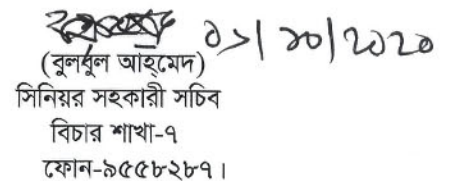 ০১/১০/২০২০
(বুলবুল আহমেদ)
সিনিয়র সহকারী সচিব
বিচার শাখা-৭
ফোন-৯৫৫৮২৮৭।